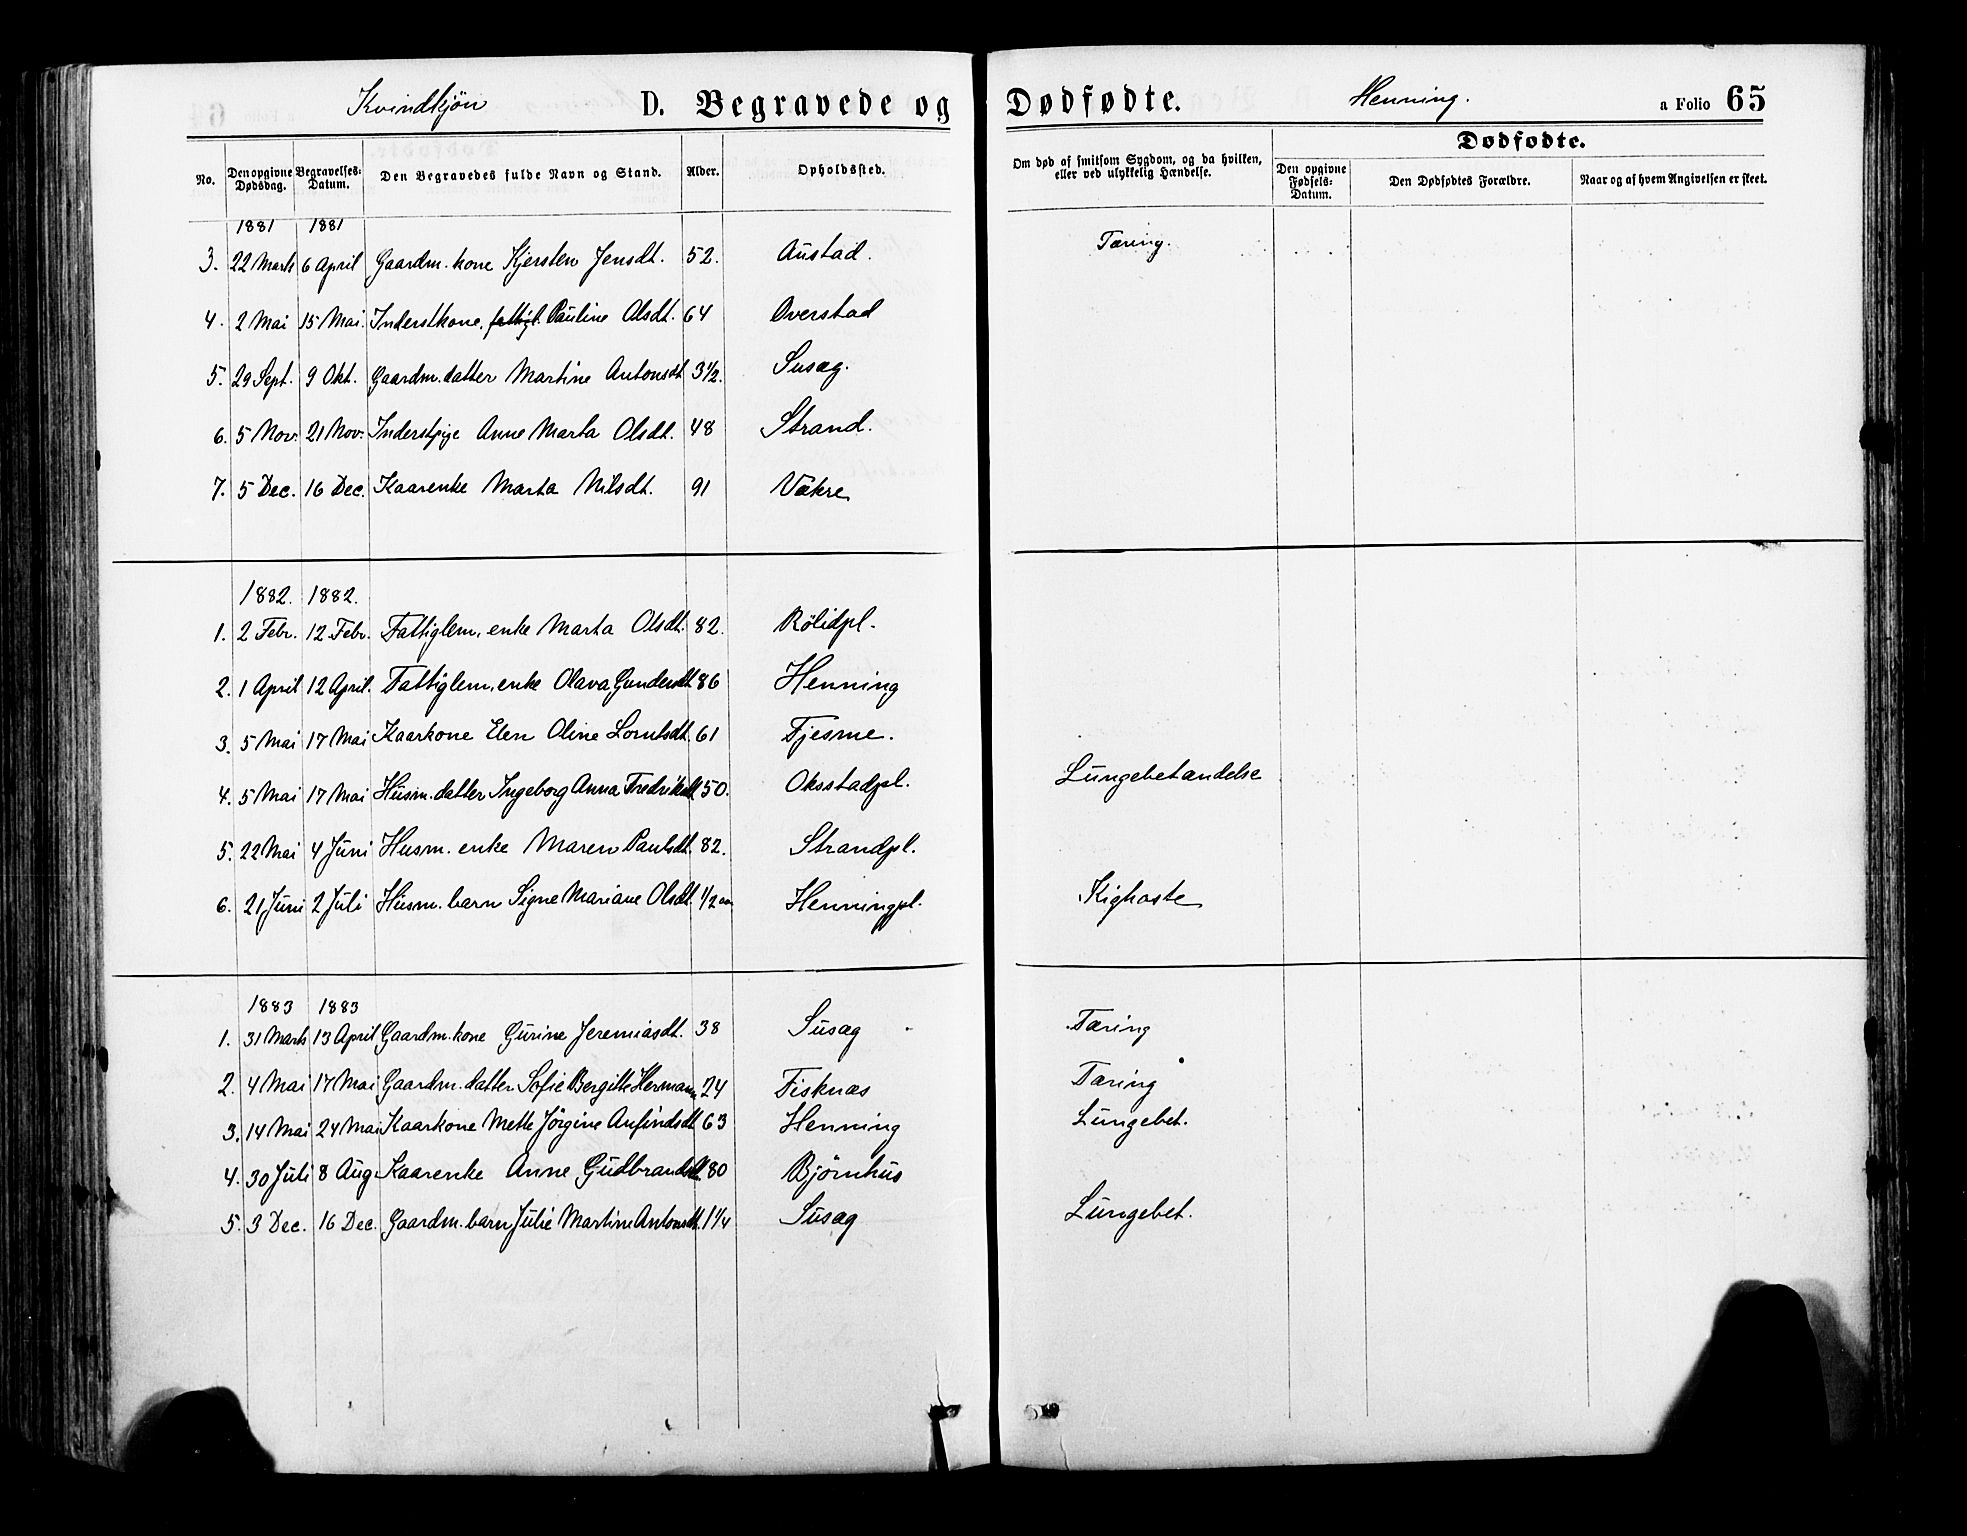 Kvindkjön D. Begravede og Dødfødte. Henning. a Folio 65
Dødfødte.
No. Den opgivne Dødsdag. Begravelses-Datum. Den Begravedes fulde Navn og Stand. Alder. Opholdssted. Om død af smitsom Sygdom, og da hvilken, eller ved ulykkelig Hændelse. Den opgivne Fødsels-Datum. Den Dødfødtes Forældre. Naar og af hvem Angivelsen er skeet.
1881 1881
3. 22 Marts 6 April Gaardm. kone Kjersten Jensdt. 52. Austad. Tæring.
4. 2 Mai 15 Mai. Inderstkone, fattigl. Pauline Olsdt. 64 Overstad
5. 29 Sept. 9 Okt. Gaardm. datter Martine Antonsdt 3 1/2. Susæg.
6. 5 Nov. 21 Nov. Inderstpige Anne Marta Olsdt. 48 Strand.
7. 5 Dec. 16 Dec. Kaarenke Marta Nilsdt. 91 Vækre
1882. 1882.
1. 2 Febr. 12 Febr. Fattiglem, enke Marta Olsdt. 82. Rölidpl.
2. 1 April 12 April. Fattiglem, enke Olava Gundersdt 86 Henning
3. 5 Mai 17 Mai Kaarkone Elen Oline Lorntsdt. 61 Tjesme.
4. 5 Mai 17 Mai Husm. datter Ingeborg Anna Fredriksdt 50. Oksstadpl. Lungebetændelse
5. 22 Mai 4 Juni Husm. enke Maren Paulsdt. 82. Strandpl.
6. 21 Juni 2 Juli Husm. barn Signe Mariane Olsdt. 1/2 aar Henningpl. Kighoste
1883 1883
1. 31 Marts 13 April Gaardm. kone Gurine Jeremiasdt. 38 Susæg Tæring
2. 4 Mai 17 Mai Gaardm. datter Sofie Bergitte Hermann 24 Fisknæs Tæring
3. 14 Mai 24 Mai Kaarkone Mette Jörgine Anfindsdt 63 Henning Lungebet.
4. 30 Juli 8 Aug Kaarenke Anne Gudbrandsdt. 80 Bjömhus
5. 3 Dec. 16 Dec. Gaardm. barn Julie Martine Antonsdt. 1 1/4 Susæg Lungebet.